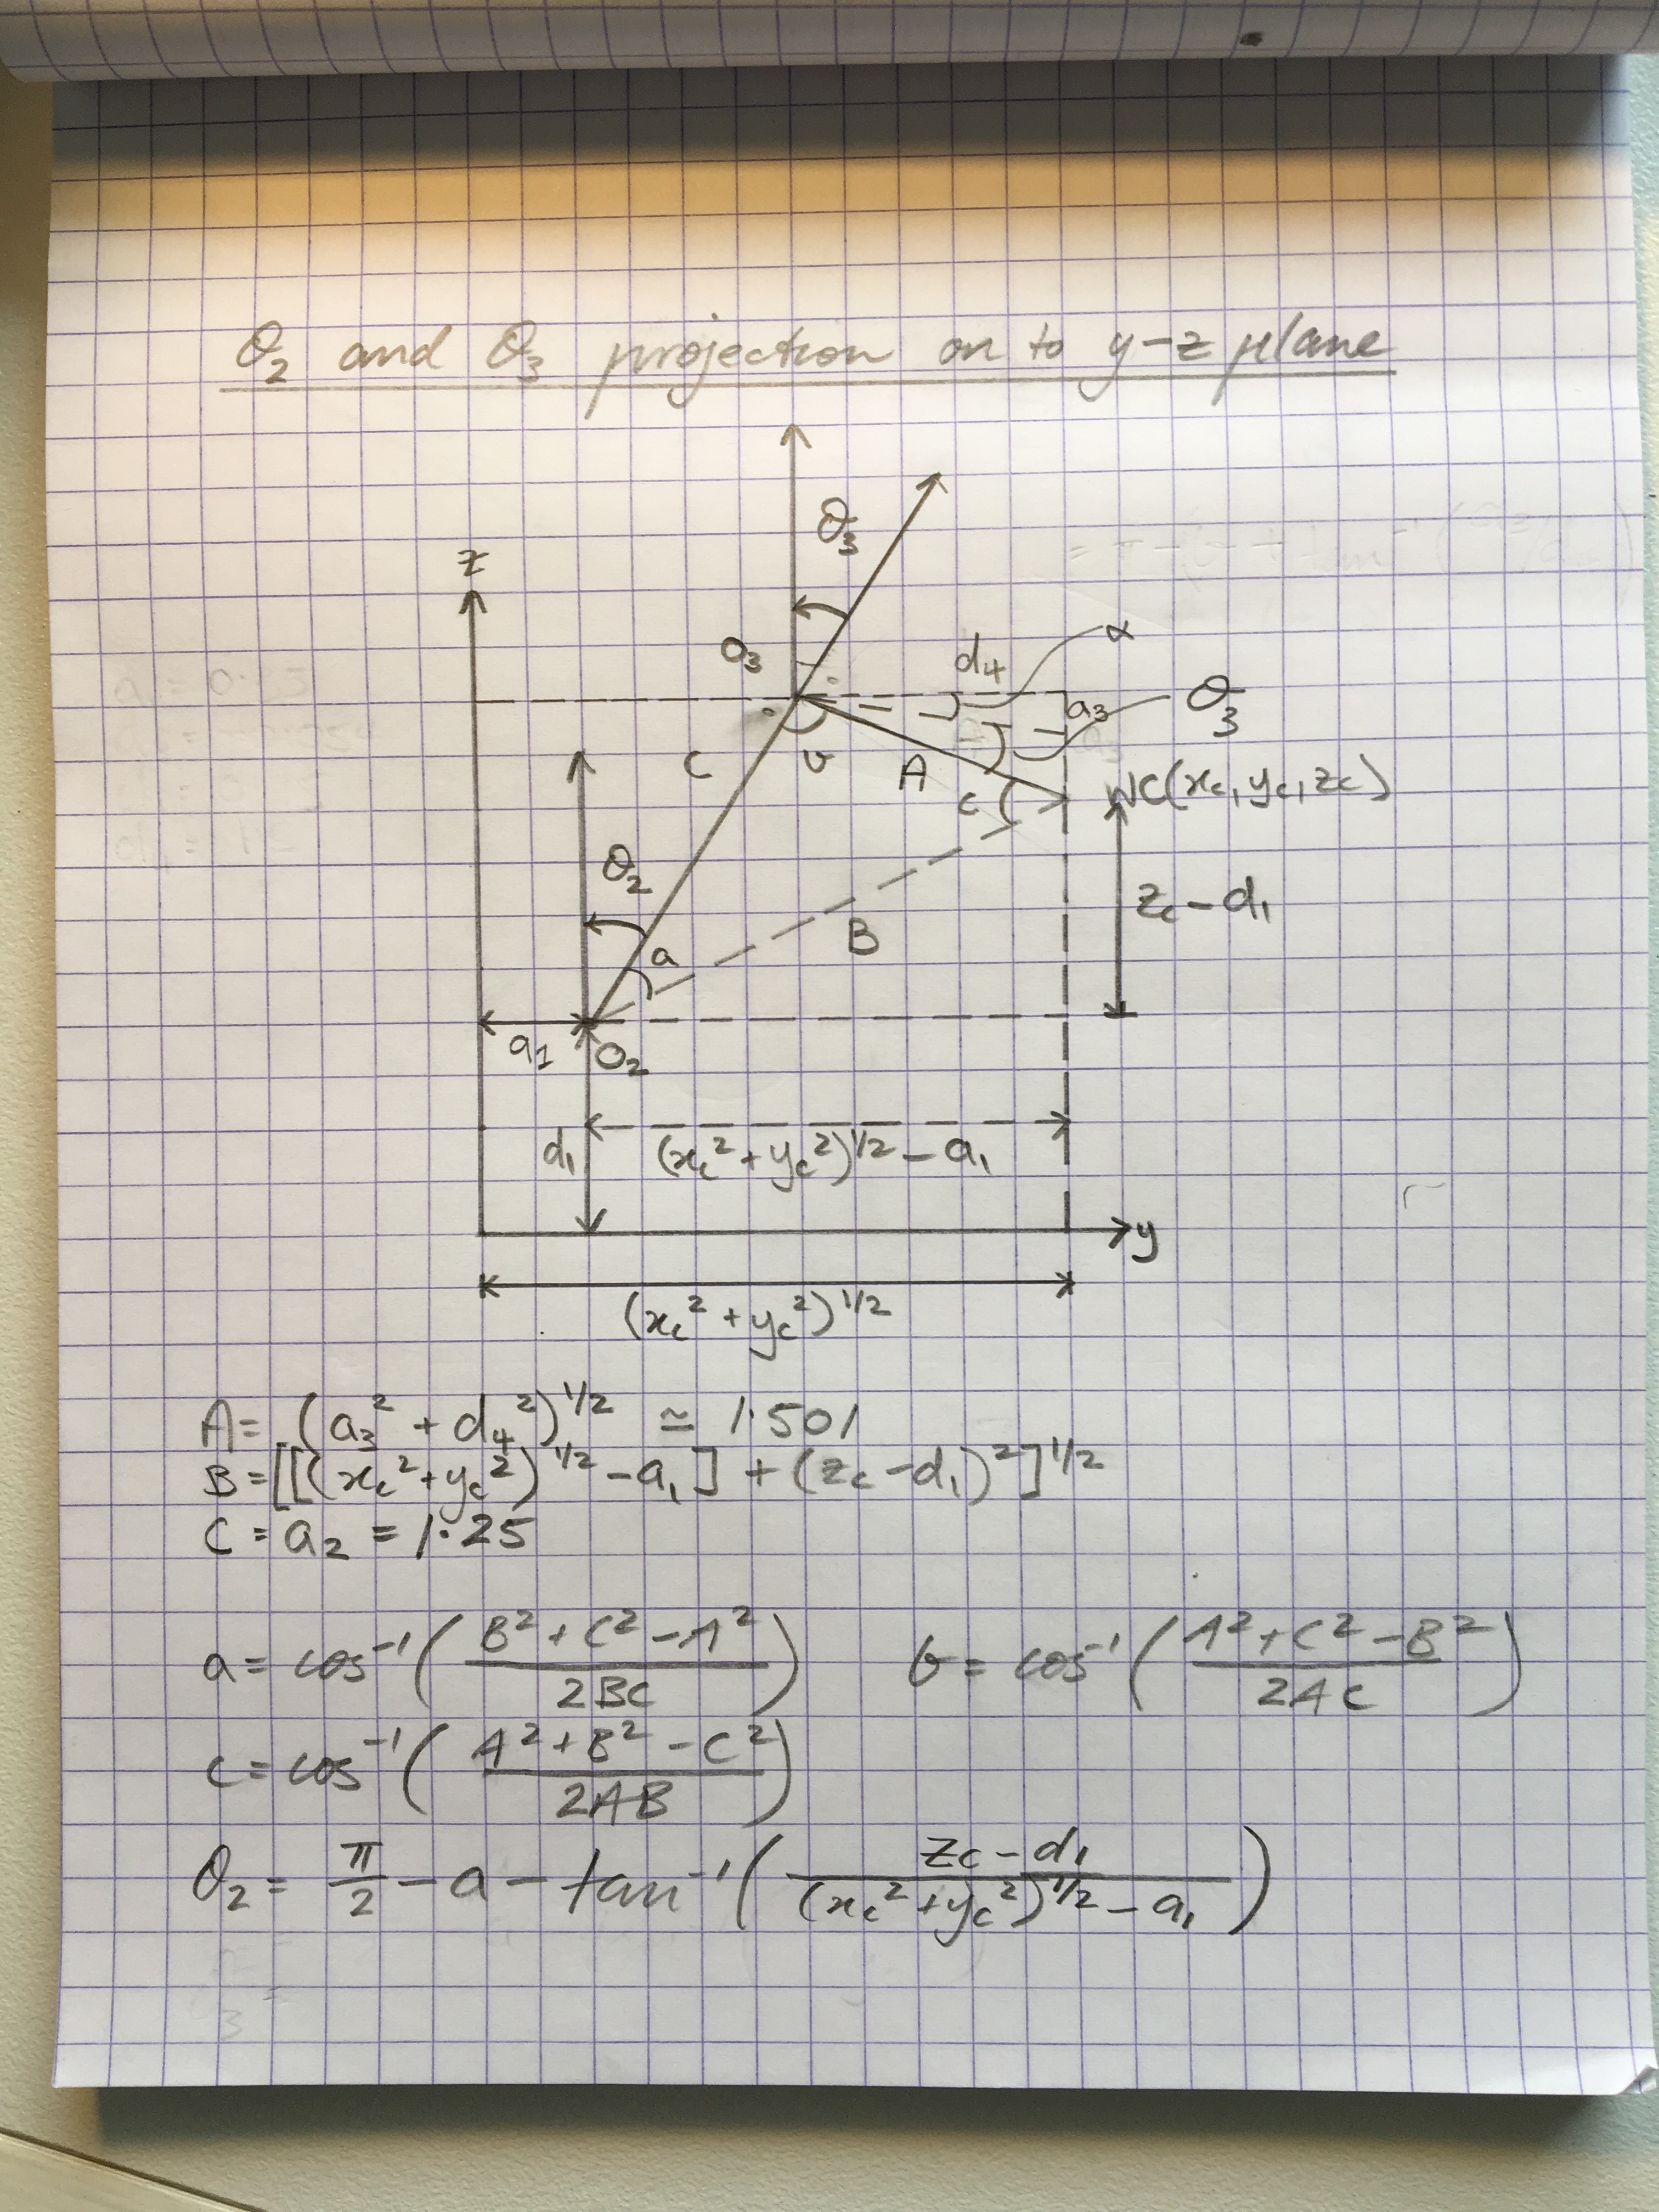 θ₂ and θ₃ projection on to y-z plane
θ₃
z
O₃
α
d₄
θ₃
a₃
C
b
A
WC(xc, yc, zc)
c
θ₂
zc - d₁
B
a
a₁
O₂
d₁
(xc² + yc²)^1/2 - a₁
y
(xc² + yc²)^1/2
A = (a₃² + d₄²)^1/2 ≃ 1.501
B = [[(xc² + yc²)^1/2 - a₁] + (zc - d₁)²]^1/2
C = a₂ = 1.25
a = cos⁻¹( (B² + C² - A²) / 2BC ) b = cos⁻¹( (A² + C² - B²) / 2AC )
c = cos⁻¹( (A² + B² - C²) / 2AB )
θ₂ = π/2 - a - tan⁻¹( (zc - d₁) / ((xc² + yc²)^1/2 - a₁) )